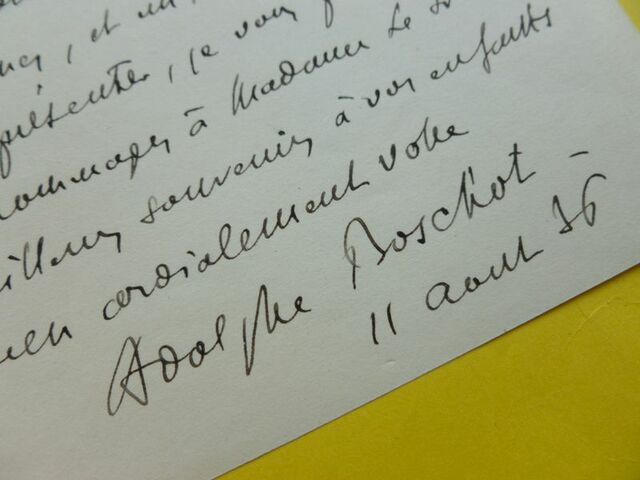 , et
présenter, je vous
hommages à Madame Le
souvenirs à vos enfants
cordialement votre
Adolphe Boschot -
11 aout 36